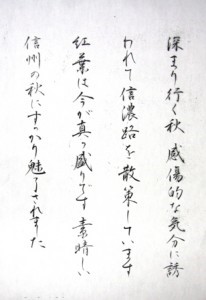 深まり行く秋 感傷的な気分に誘
われて信濃路を散策しています
紅葉は今が真っ盛りです 素晴しい
信州の秋にすっかり魅了されました